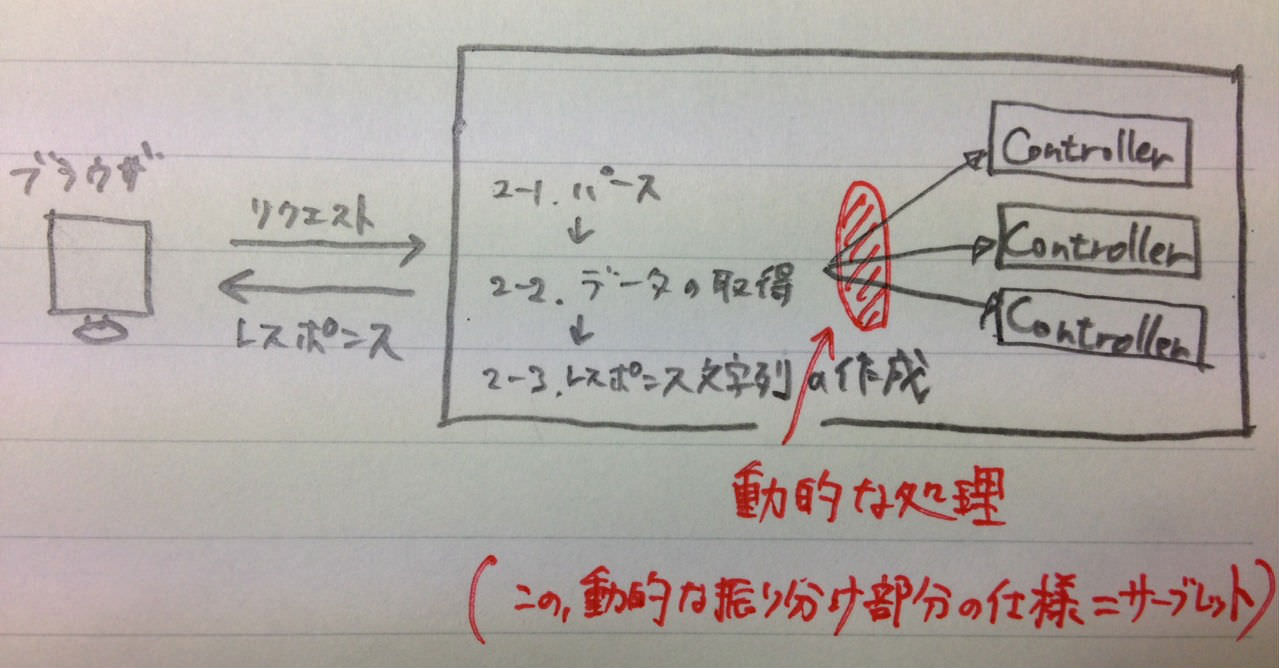 ブラウザ
リクエスト
レスポンス
2-1. パース
↓
2-2. データの取得
↓
2-3. レスポンス文字列の作成
Controller
Controller
Controller
動的な処理
(この,動的な振り分け部分の仕様=サーブレット)